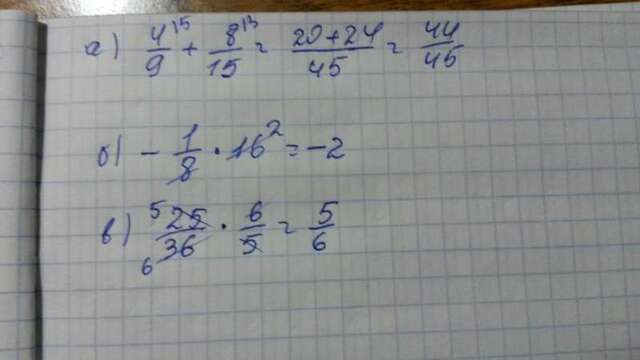 а) 4/9 ⁽⁵ + 8/15 ⁽³ = 20+24/45 = 44/45
б) - 1/8 · 16² = -2
в) ⁵25/₆36 · 6/5 = 5/6